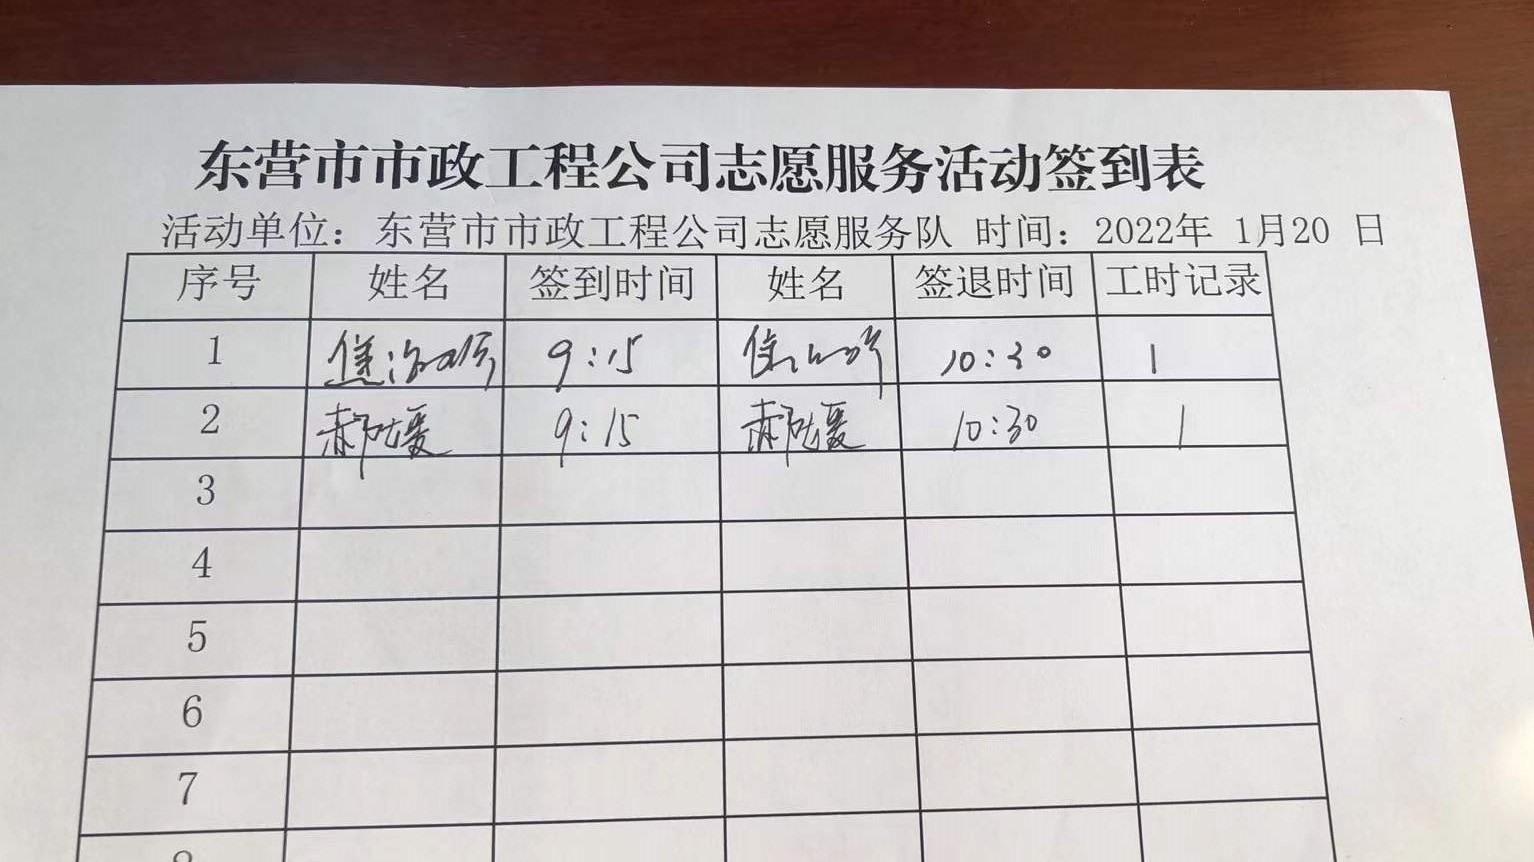 东营市市政工程公司志愿服务活动签到表
活动单位：东营市市政工程公司志愿服务队 时间：2022年 1月20 日
序号 姓名 签到时间 姓名 签退时间 工时记录
1 9:15 10:30 1
2 郝 9:15 郝 10:30 1
3
4
5
6
7
8